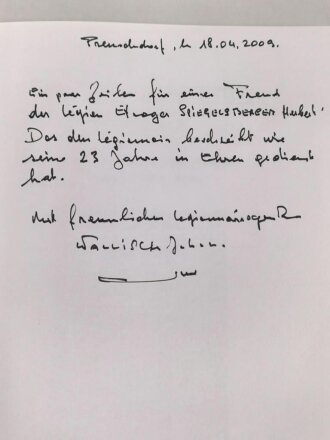 Preuschdorf, le 18.04.2009.
Ein paar Zeilen für einen Freund
der légion Etrager STIEGELSBERGER Herbert
Das der légionair beschreibt wie
seine 23 Jahre in Ehren gedient
hat.
Mit freundlichen
WALLISCH Johan.